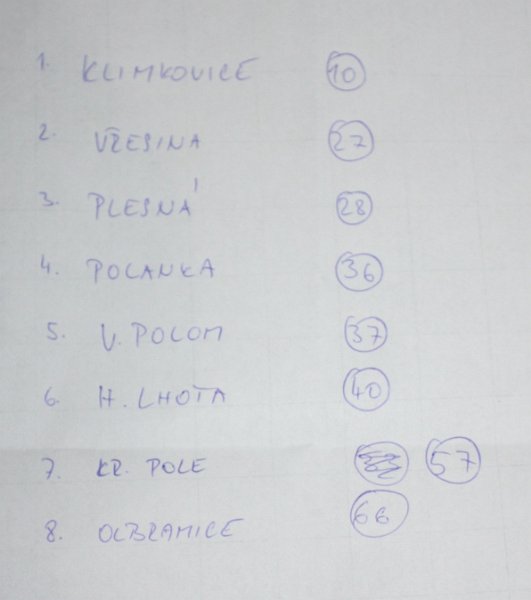 1. KLIMKOVICE 10
2. VŘESINA 27
3. PLESNÁ 28
4. POLANKA 36
5. V. POLOM 37
6. H. LHOTA 40
7. KR. POLE 57
8. OLBRAMICE 66